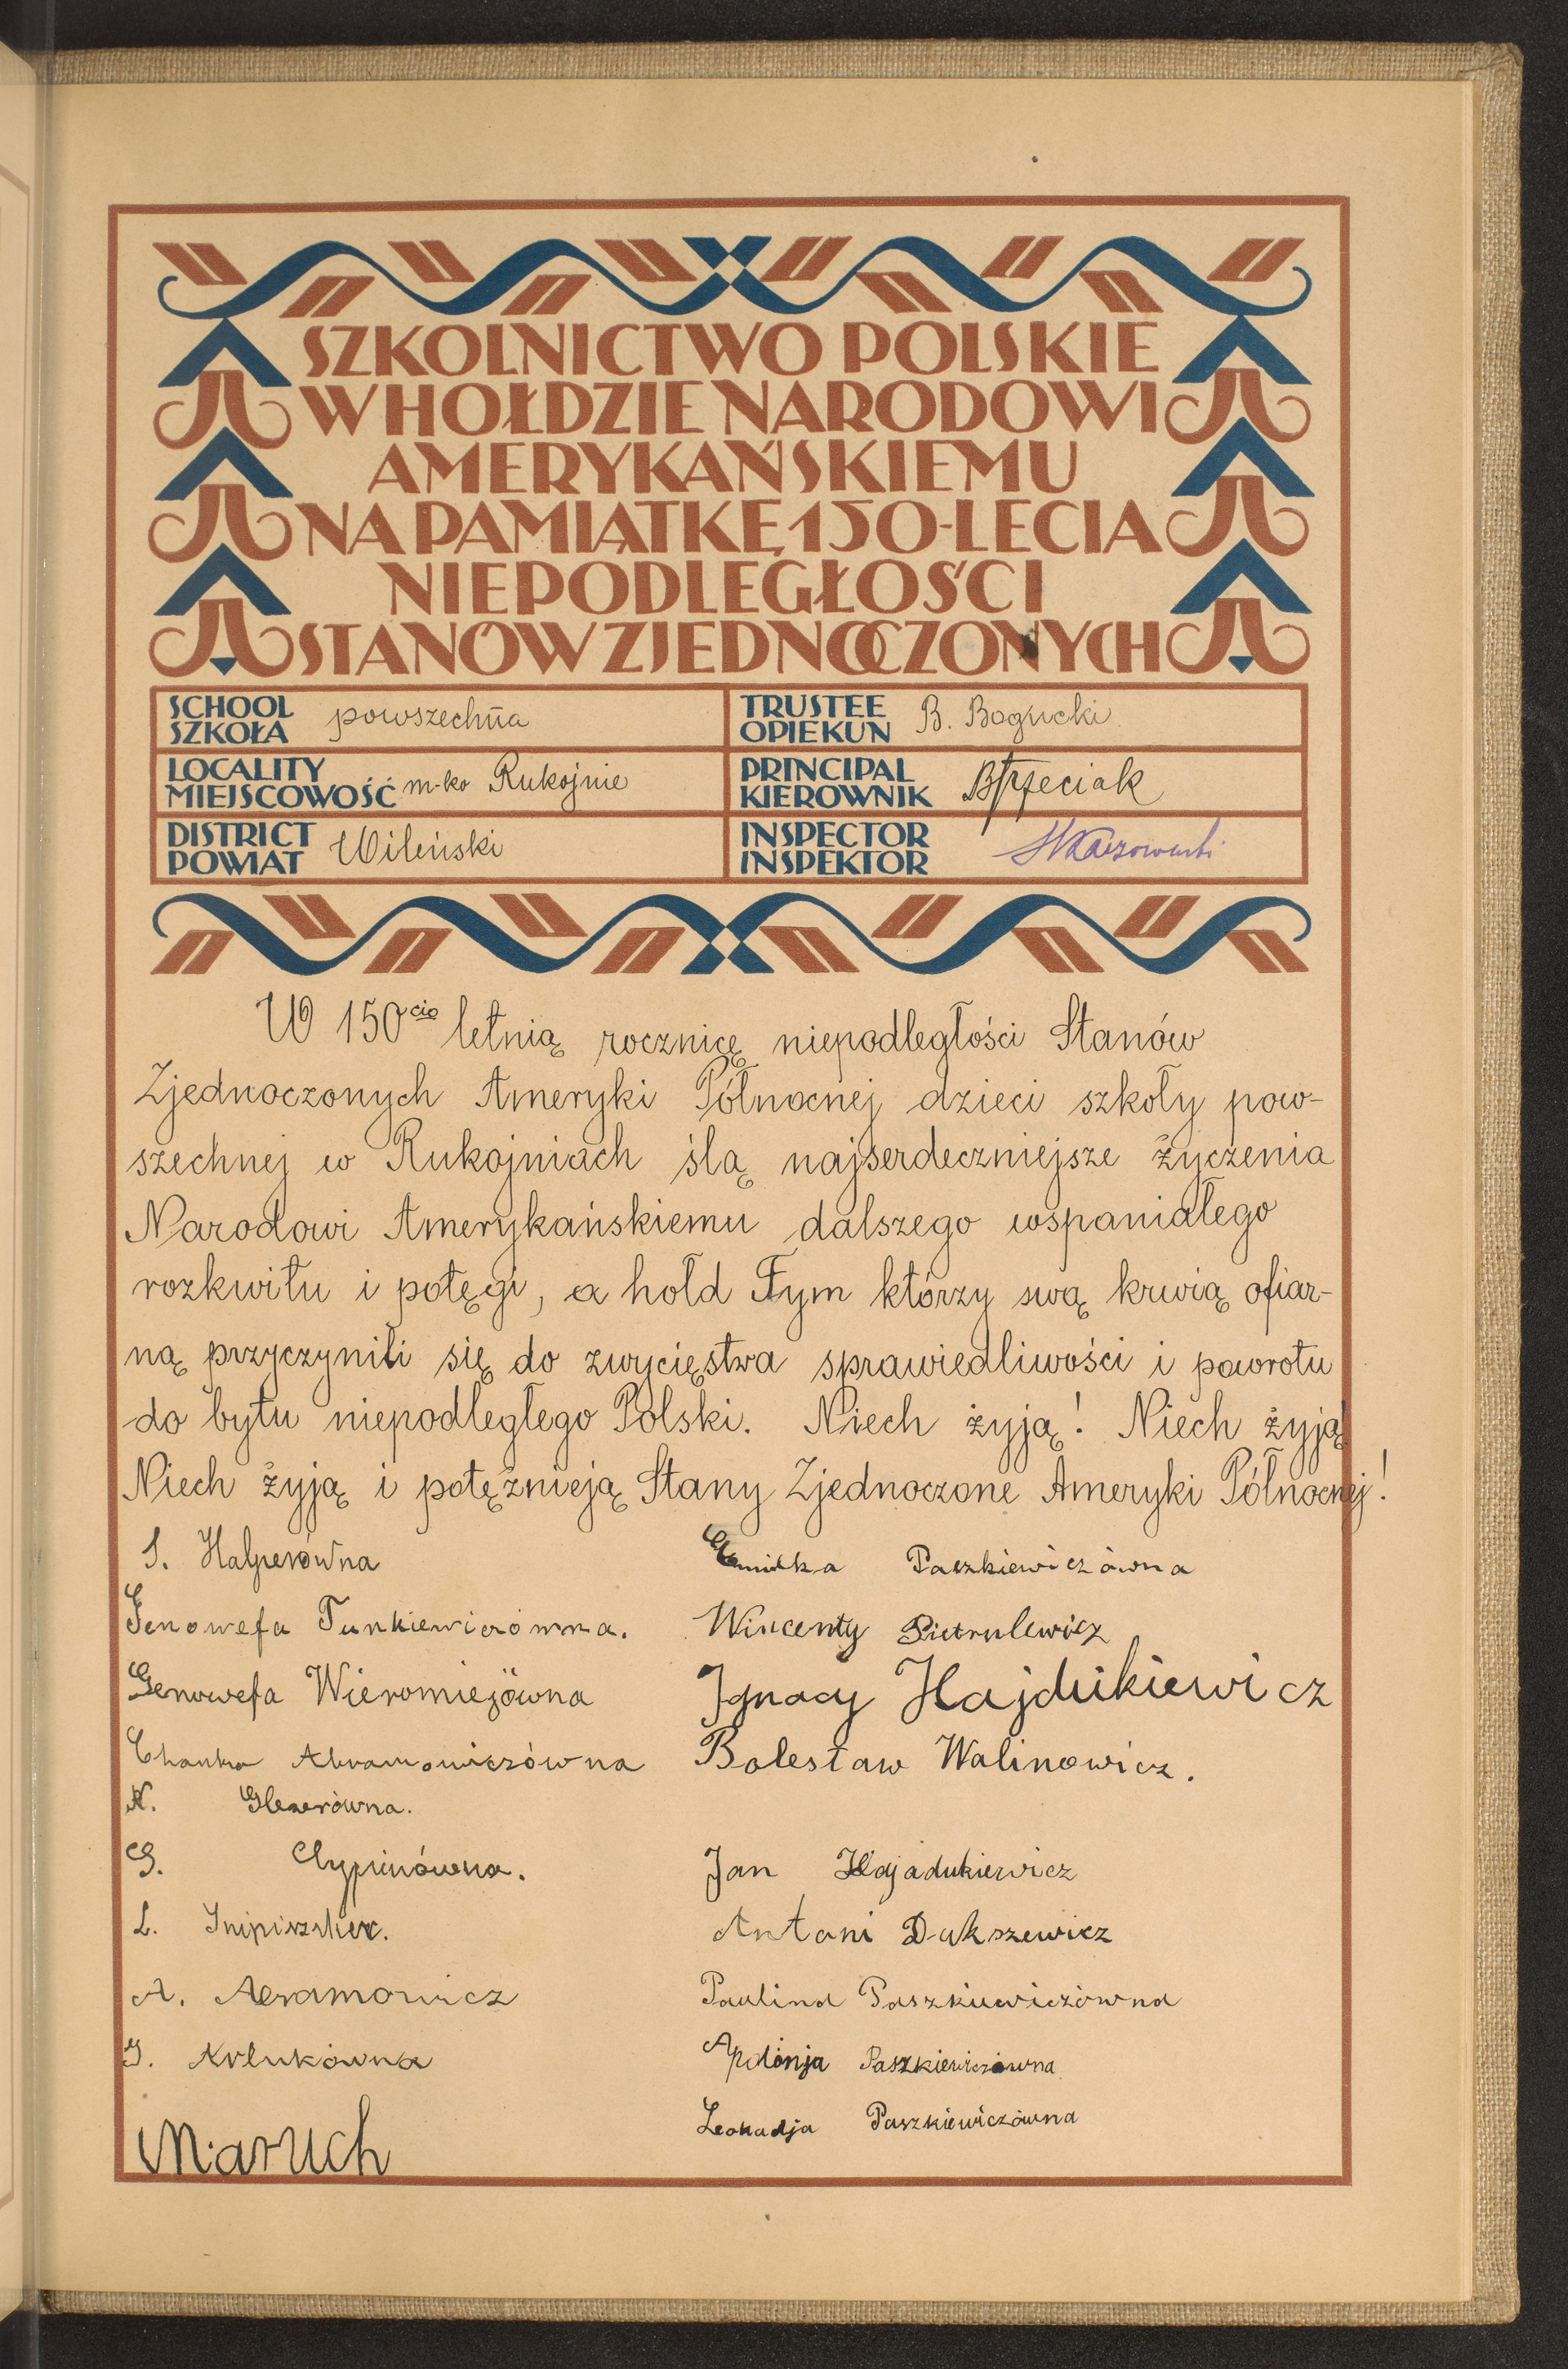 SZKOLNICTWO POLSKIE
W HOŁDZIE NARODOWI
AMERYKAŃSKIEMU
NA PAMIĄTKĘ 150-LECIA
NIEPODLEGŁOŚCI
STANÓW ZJEDNOCZONYCH
SCHOOL
SZKOŁA powszechna
TRUSTEE
OPIEKUN B. Bogucki
LOCALITY
MIEJSCOWOŚĆ m-ko Rukojnie
PRINCIPAL
KIEROWNIK BTrzeciak
DISTRICT
POWIAT Wileński
INSPECTOR
INSPEKTOR
W 150cio letnią rocznicę niepodległości Stanów
Zjednoczonych Ameryki Północnej dzieci szkoły pow-
szechnej w Rukojniach ślą najserdeczniejsze życzenia
Narodowi Amerykańskiemu dalszego wspaniałego
rozkwitu i potęgi, a hołd Tym którzy swą krwią ofiar-
ną przyczynili się do zwycięstwa sprawiedliwości i powrotu
do bytu niepodległego Polski. Niech żyją! Niech żyją
Niech żyją i potężnieją Stany Zjednoczone Ameryki Północnej!
S. Halperówna
Paszkiewiczówna
Genowefa Tunkiewiczówna.
Wincenty Pietrulewicz
Genowefa Wieromiejówna
Ignacy Hajdukiewicz
Abramowiczówna
Bolesław Walinowicz.
Glezerówna.
G. Cypinówna.
Jan Hajadukiewicz
L.
Antoni Dukszewicz
A. Abramowicz
Paulina Paszkiewiczówna
Apolonja Paszkiewiczówna
Leokadja Paszkiewiczówna
Maruch